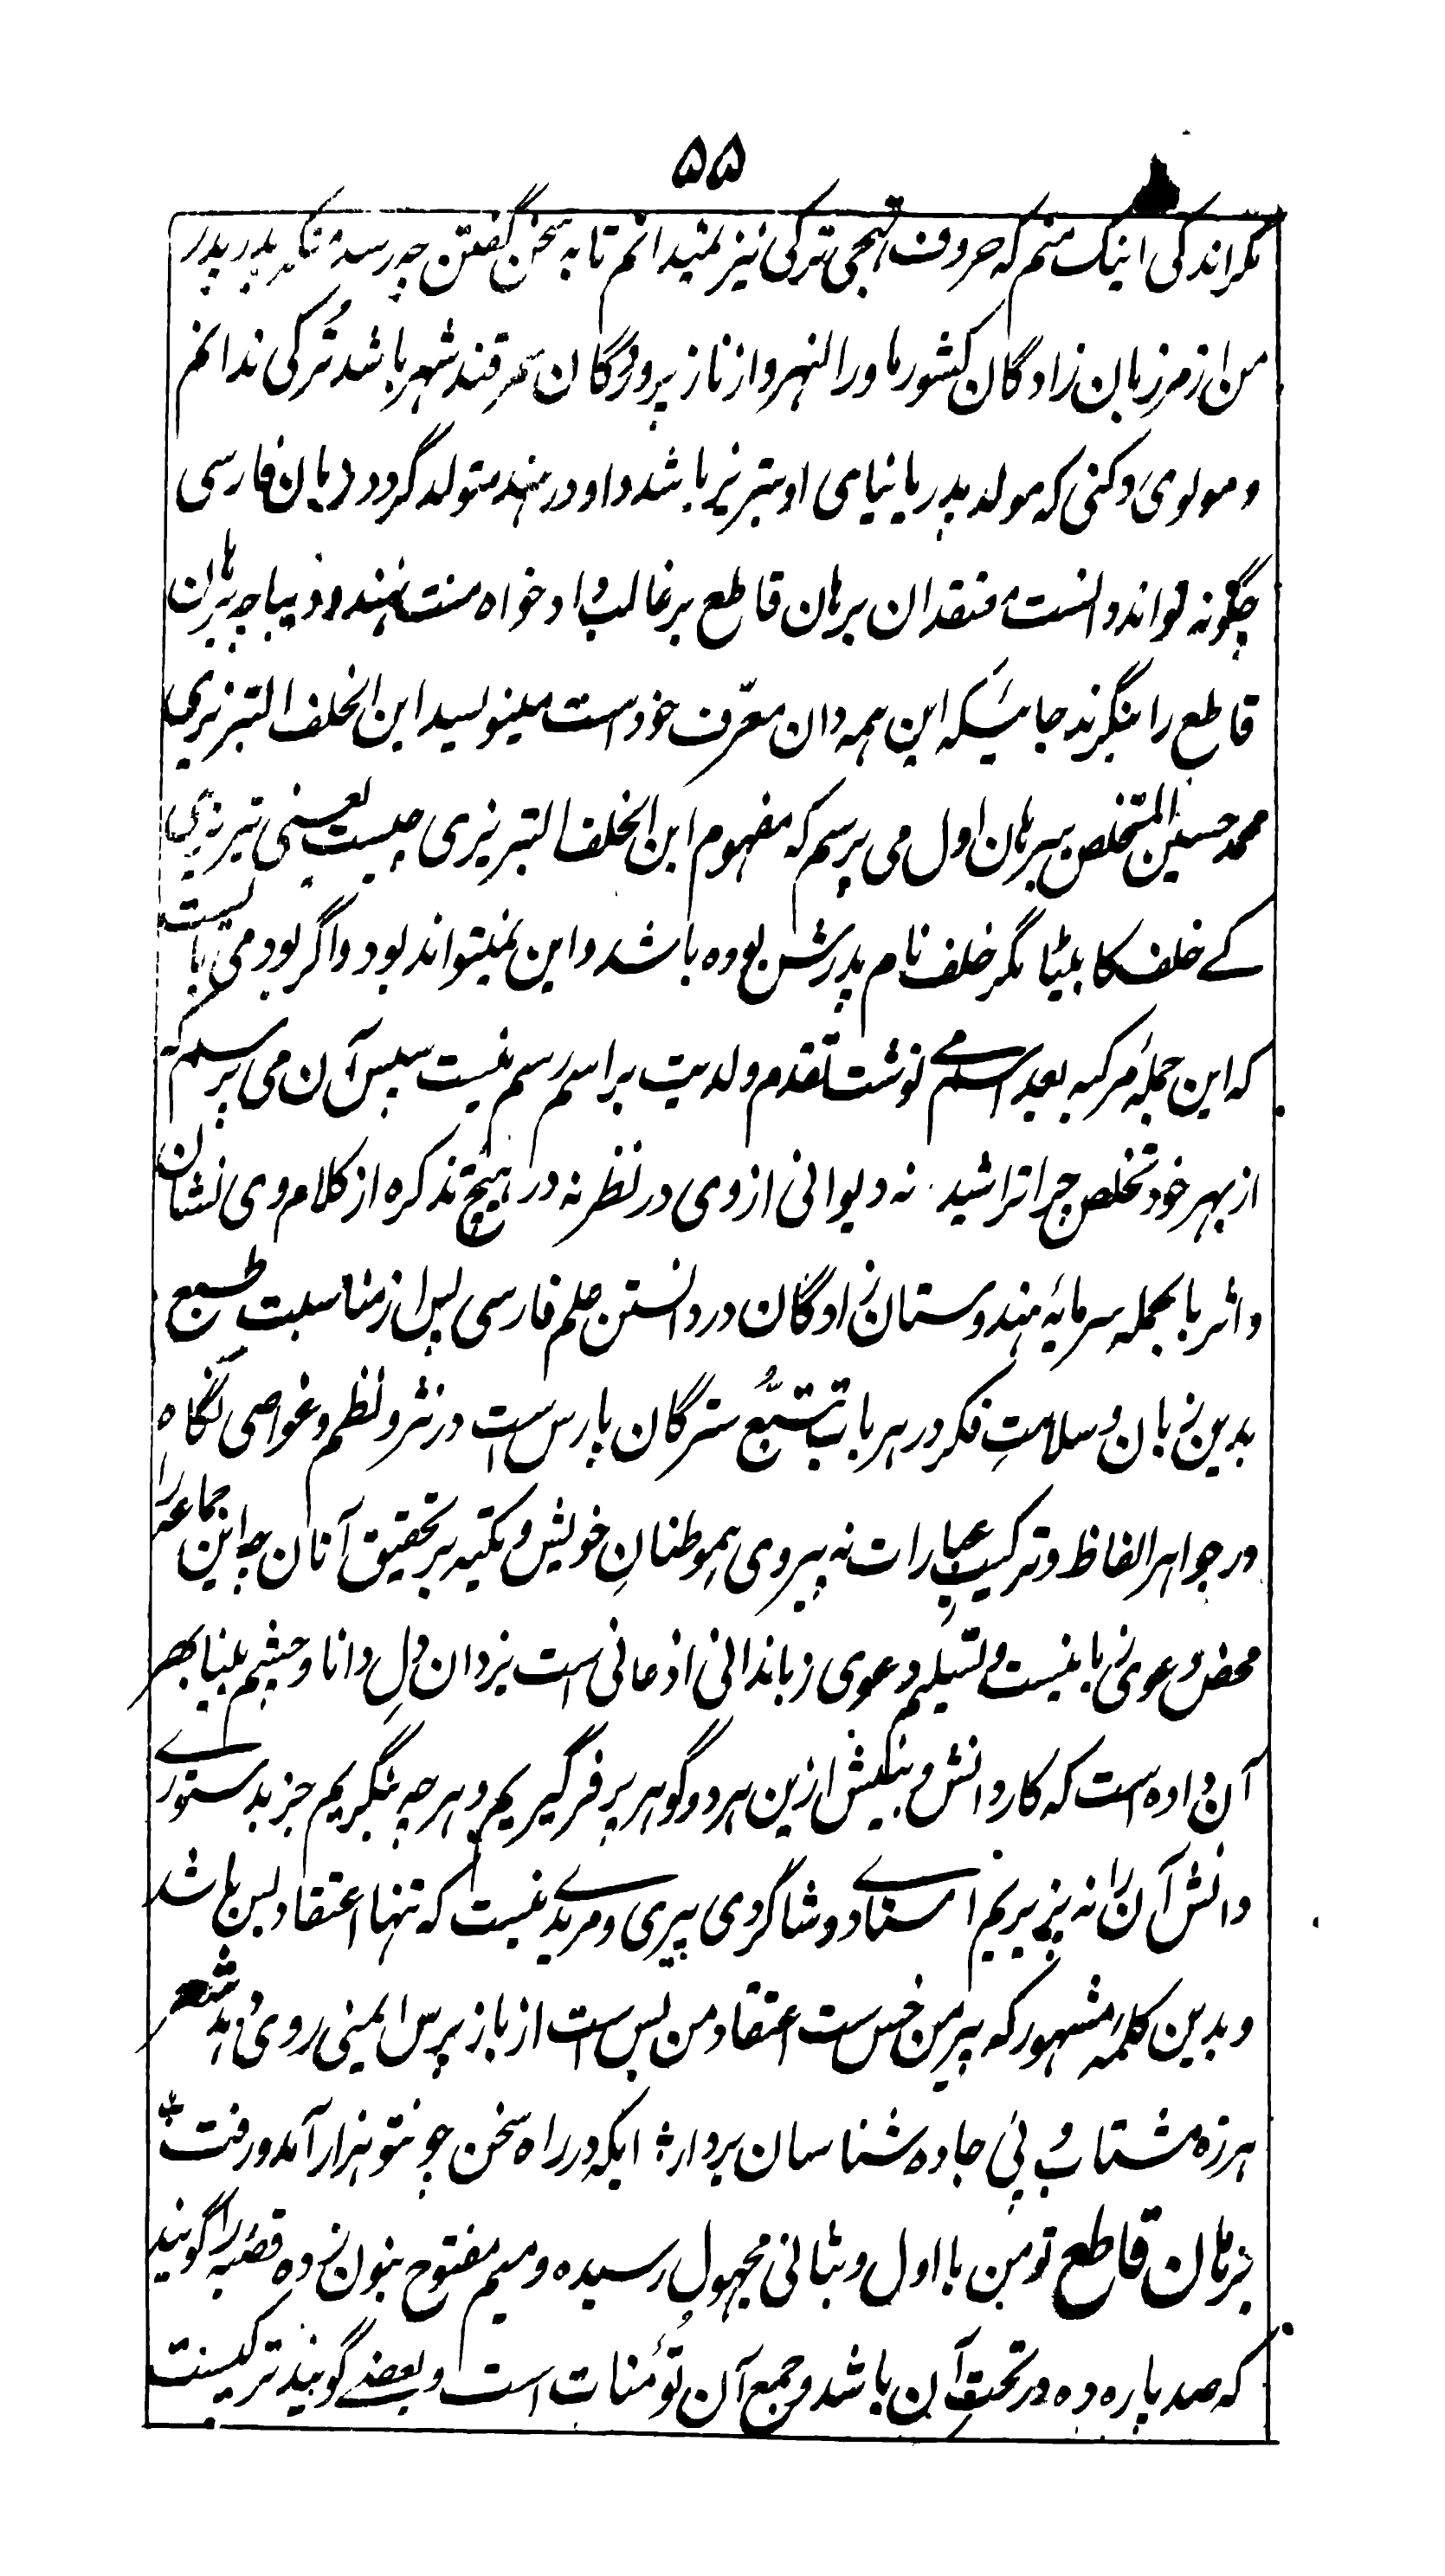 ۵۵
مگر اندکی اینک منم که حروف تهجی ترکی نیز نمیدانم تا به سخن گفتن چه رسد منکه پدر پدر
من از مرزبان زادگان کشور ماوراالنهر و از ناز پروردگان سمرقند شهر باشد تُرکی ندانم
و مولوی دکنی که مولد پدر یا نیای او تبریز باشد و او در هند متولد گردد زبان فارسی
چگونه تواند دانست معتقدان برهان قاطع بر غالب داد خواه منت نهند و دیباچه برهان
قاطع را بنگرند جاییکه این همه دان معرّف خودست مینویسد ابن الخلف التبریزی
محمد حسین المتخلص ببرهان اول می پرسم که مفهوم ابن الخلف التبریزی چیست یعنی تبریزی
کے خلف کا بیٹا مگر خلف نام پدرش بوده باشد و این نمیتواند بود و اگر بود می بایست
که این جملهٔ مرکبه بعد اسمے نوشت تقدم ولدیت بر اسم رسم نیست سپس آن می پرسم که
از بهر خود تخلص چرا تراشید نه دیوانی از وی در نظر نه در هیچ تذکره از کلام وی نشان
و اثر بالجمله سرمایهٔ هندوستان زادگان در دانستن علم فارسی پس از مناسبت طبع
بدین زبان و سلامتِ فکر در هر باب تتبُّع سترگان پارس ست در نثر و نظم و غواصی نگاه
در جواهر الفاظ و ترکیبِ عبارات نه پیروی هموطنانِ خویش و تکیه بر تحقیق آنان چه این جماعه را
محض دعوی زبانیست و تسلیم دعوی زباندانی اذعانی است یزدان دلِ دانا و چشم بینا بهر
آن داده است که کار دانش و بینش ازین هر دو گوهر بر فرگیریم و هر چه بنگریم جز بدستورے
دانش آن را نه پذیریم استادے و شاگردی پیری و مریدے نیست که تنها اعتقاد بس باشد
و بدین کلمهٔ مشهور که پیر من خس ست اعتقاد من بس ست از باز پرس ایمنی روی دهد شعر
هرزه مشتاب و پی جاده شناسان بردار ایکه در راه سخن چو نتو هزار آمد و رفت
برهان قاطع تومن با اول و بثانی مجهول رسیده و میم مفتوح بنون زده قصبه را گویند
که صد پاره ده در تحت آن باشد و جمع آن تُومنات است و بعضے گویند ترکیست